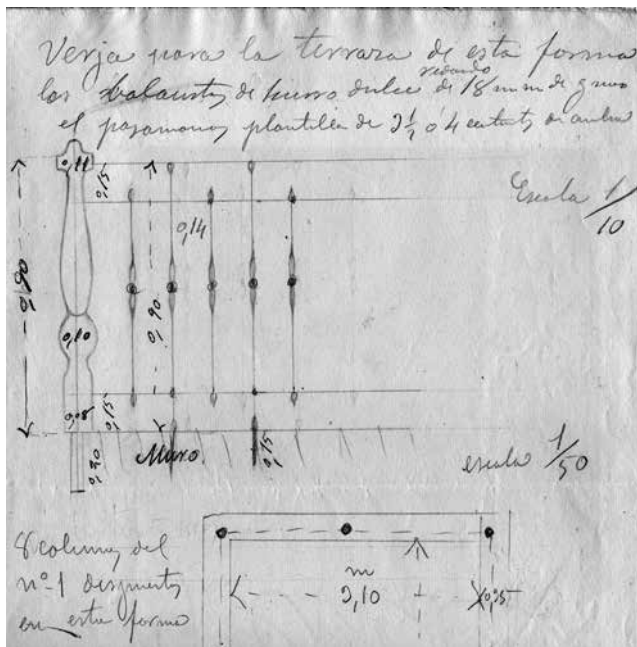 Verja para la terraza de esta forma
los balaustres de hierro dulce redondo de 18 mm de grueso
el pasamanos plantilla de 3 1/2 ó 4 de ancho
Escala 1/10
0,11
0,15
0,14
0,90
0,90
0,10
0,08
0,15
Muro.
0,15
escala 1/50
8 columnas del
nº 1 dispuestas
en esta forma
m
3,10